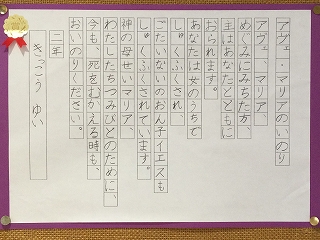 アヴェ・マリアのいのり
アヴェ、マリア、
めぐみにみちた方、
主はあなたとともに
おられます。
あなたは女のうちで
しゅくふくされ、
ごたいないのおん子イエスも
しゅくふくされています。
神の母せいマリア、
わたしたちつみびとのために、
今も、死をむかえる時も、
おいのりください。
二年
きっこう ゆい